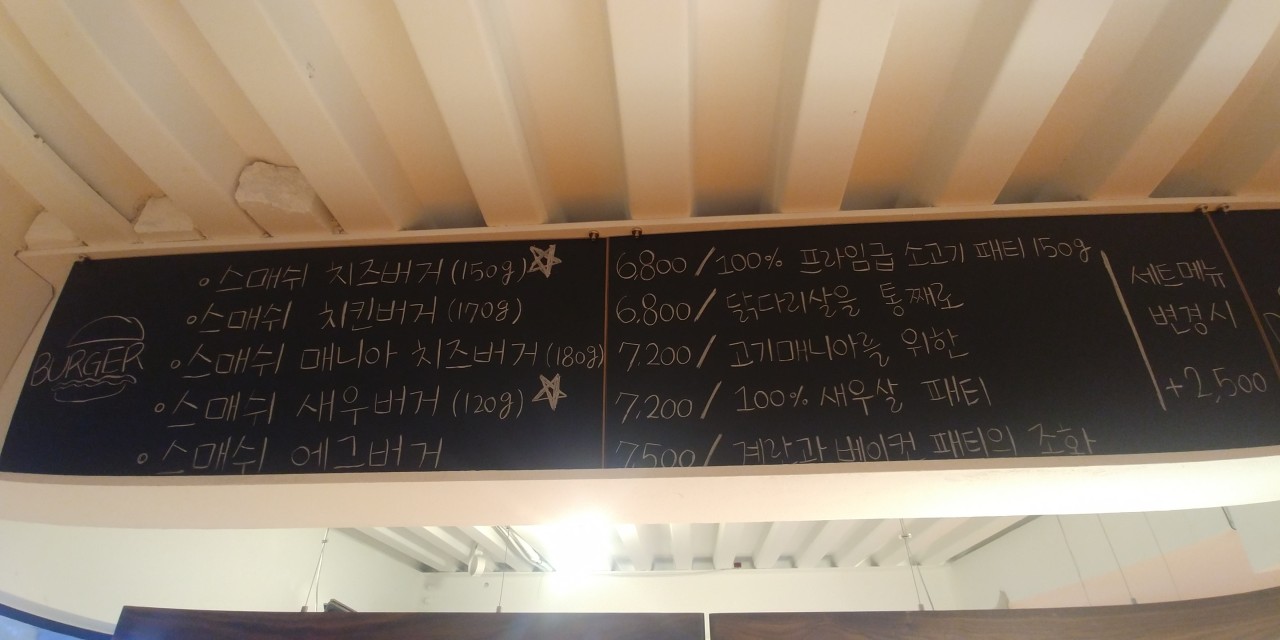 BURGER
스매쉬 치즈버거 (150g) 6,800 / 100% 프라임급 소고기 패티 150g
스매쉬 치킨버거 (170g) 6,800 / 닭다리살을 통째로
스매쉬 매니아 치즈버거 (180g) 7,200 / 고기매니아를 위한
스매쉬 새우버거 (120g) 7,200 / 100% 새우살 패티
스매쉬 에그버거 7,500 / 계란과 베이컨 패티의 조화
세트메뉴
변경시
+2,500